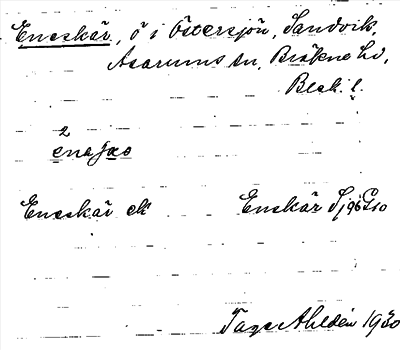 Eneskär, ö i Östersjön, Sandvik,
Asarums sn, Bräkne hd,
Blek. l.
2
Eneskär ek Enskär Sjö
Tage Ahldén 1930